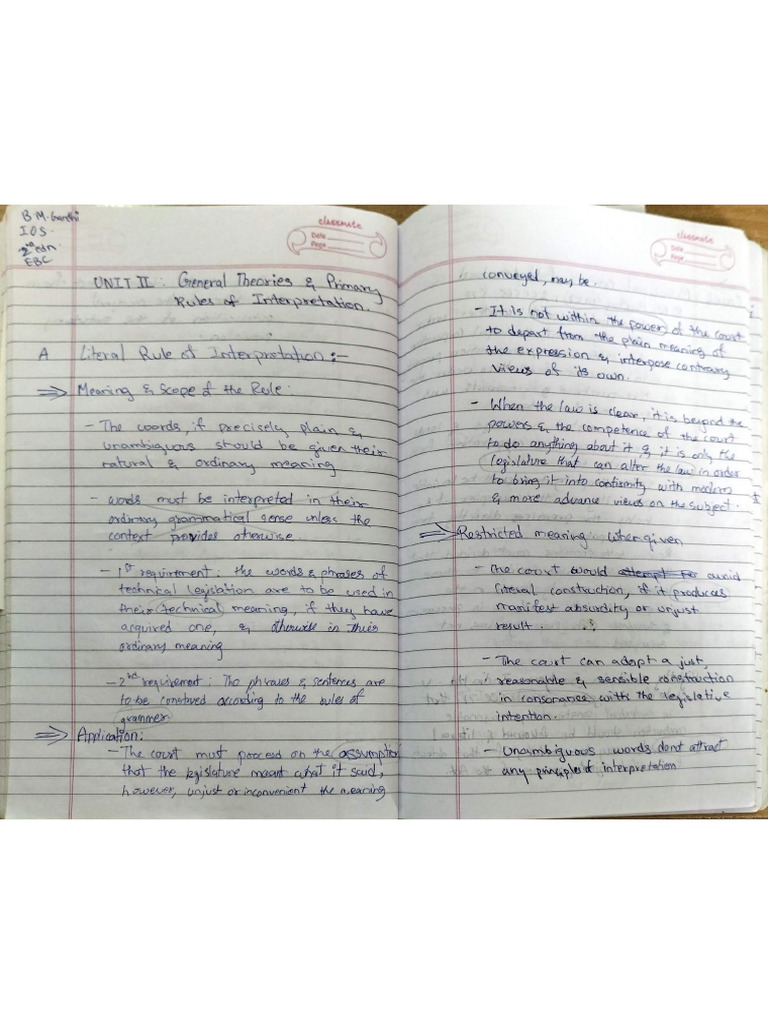 B.M. Gandhi
I O S.
2nd edn.
EBC
classmate
Date
Page
UNIT II : General Theories & Primary
Rules of Interpretation.
A Literal Rule of Interpretation :-
⇒ Meaning & Scope of the Rule.
- The words, if precisely plain &
unambiguous should be given their
natural & ordinary meaning
- words must be interpreted in their
ordinary grammatical sense unless the
context provides otherwise.
- 1st requirement : the words & phrases of
technical legislation are to be used in
their technical meaning, if they have
acquired one, & otherwise in their
ordinary meaning
- 2nd requirement : The phrases & sentences are
to be construed according to the rules of
grammer
⇒ Application:
- The court must proceed on the assumption
that the legislature meant what it said,
however, unjust or inconvenient the meaning
classmate
Date
Page
conveyed, may be.
- It is not within the power of the court
to depart from the plain meaning of
the expression & interpose contrary
views of its own.
- When the law is clear, it is beyond the
powers & the competence of the court
to do anything about it & it is only the
legislature that can alter the law in order
to bring it into conformity with modern
& more advance views on the subject.
⇒ Restricted meaning when given
- the court would attempt to avoid
literal construction, if it produces
manifest absurdity or unjust
result.
- The court can adopt a just,
reasonable & sensible construction
in consonance with the legislative
intention.
- Unambiguous words dont attract
any principles of interpretation